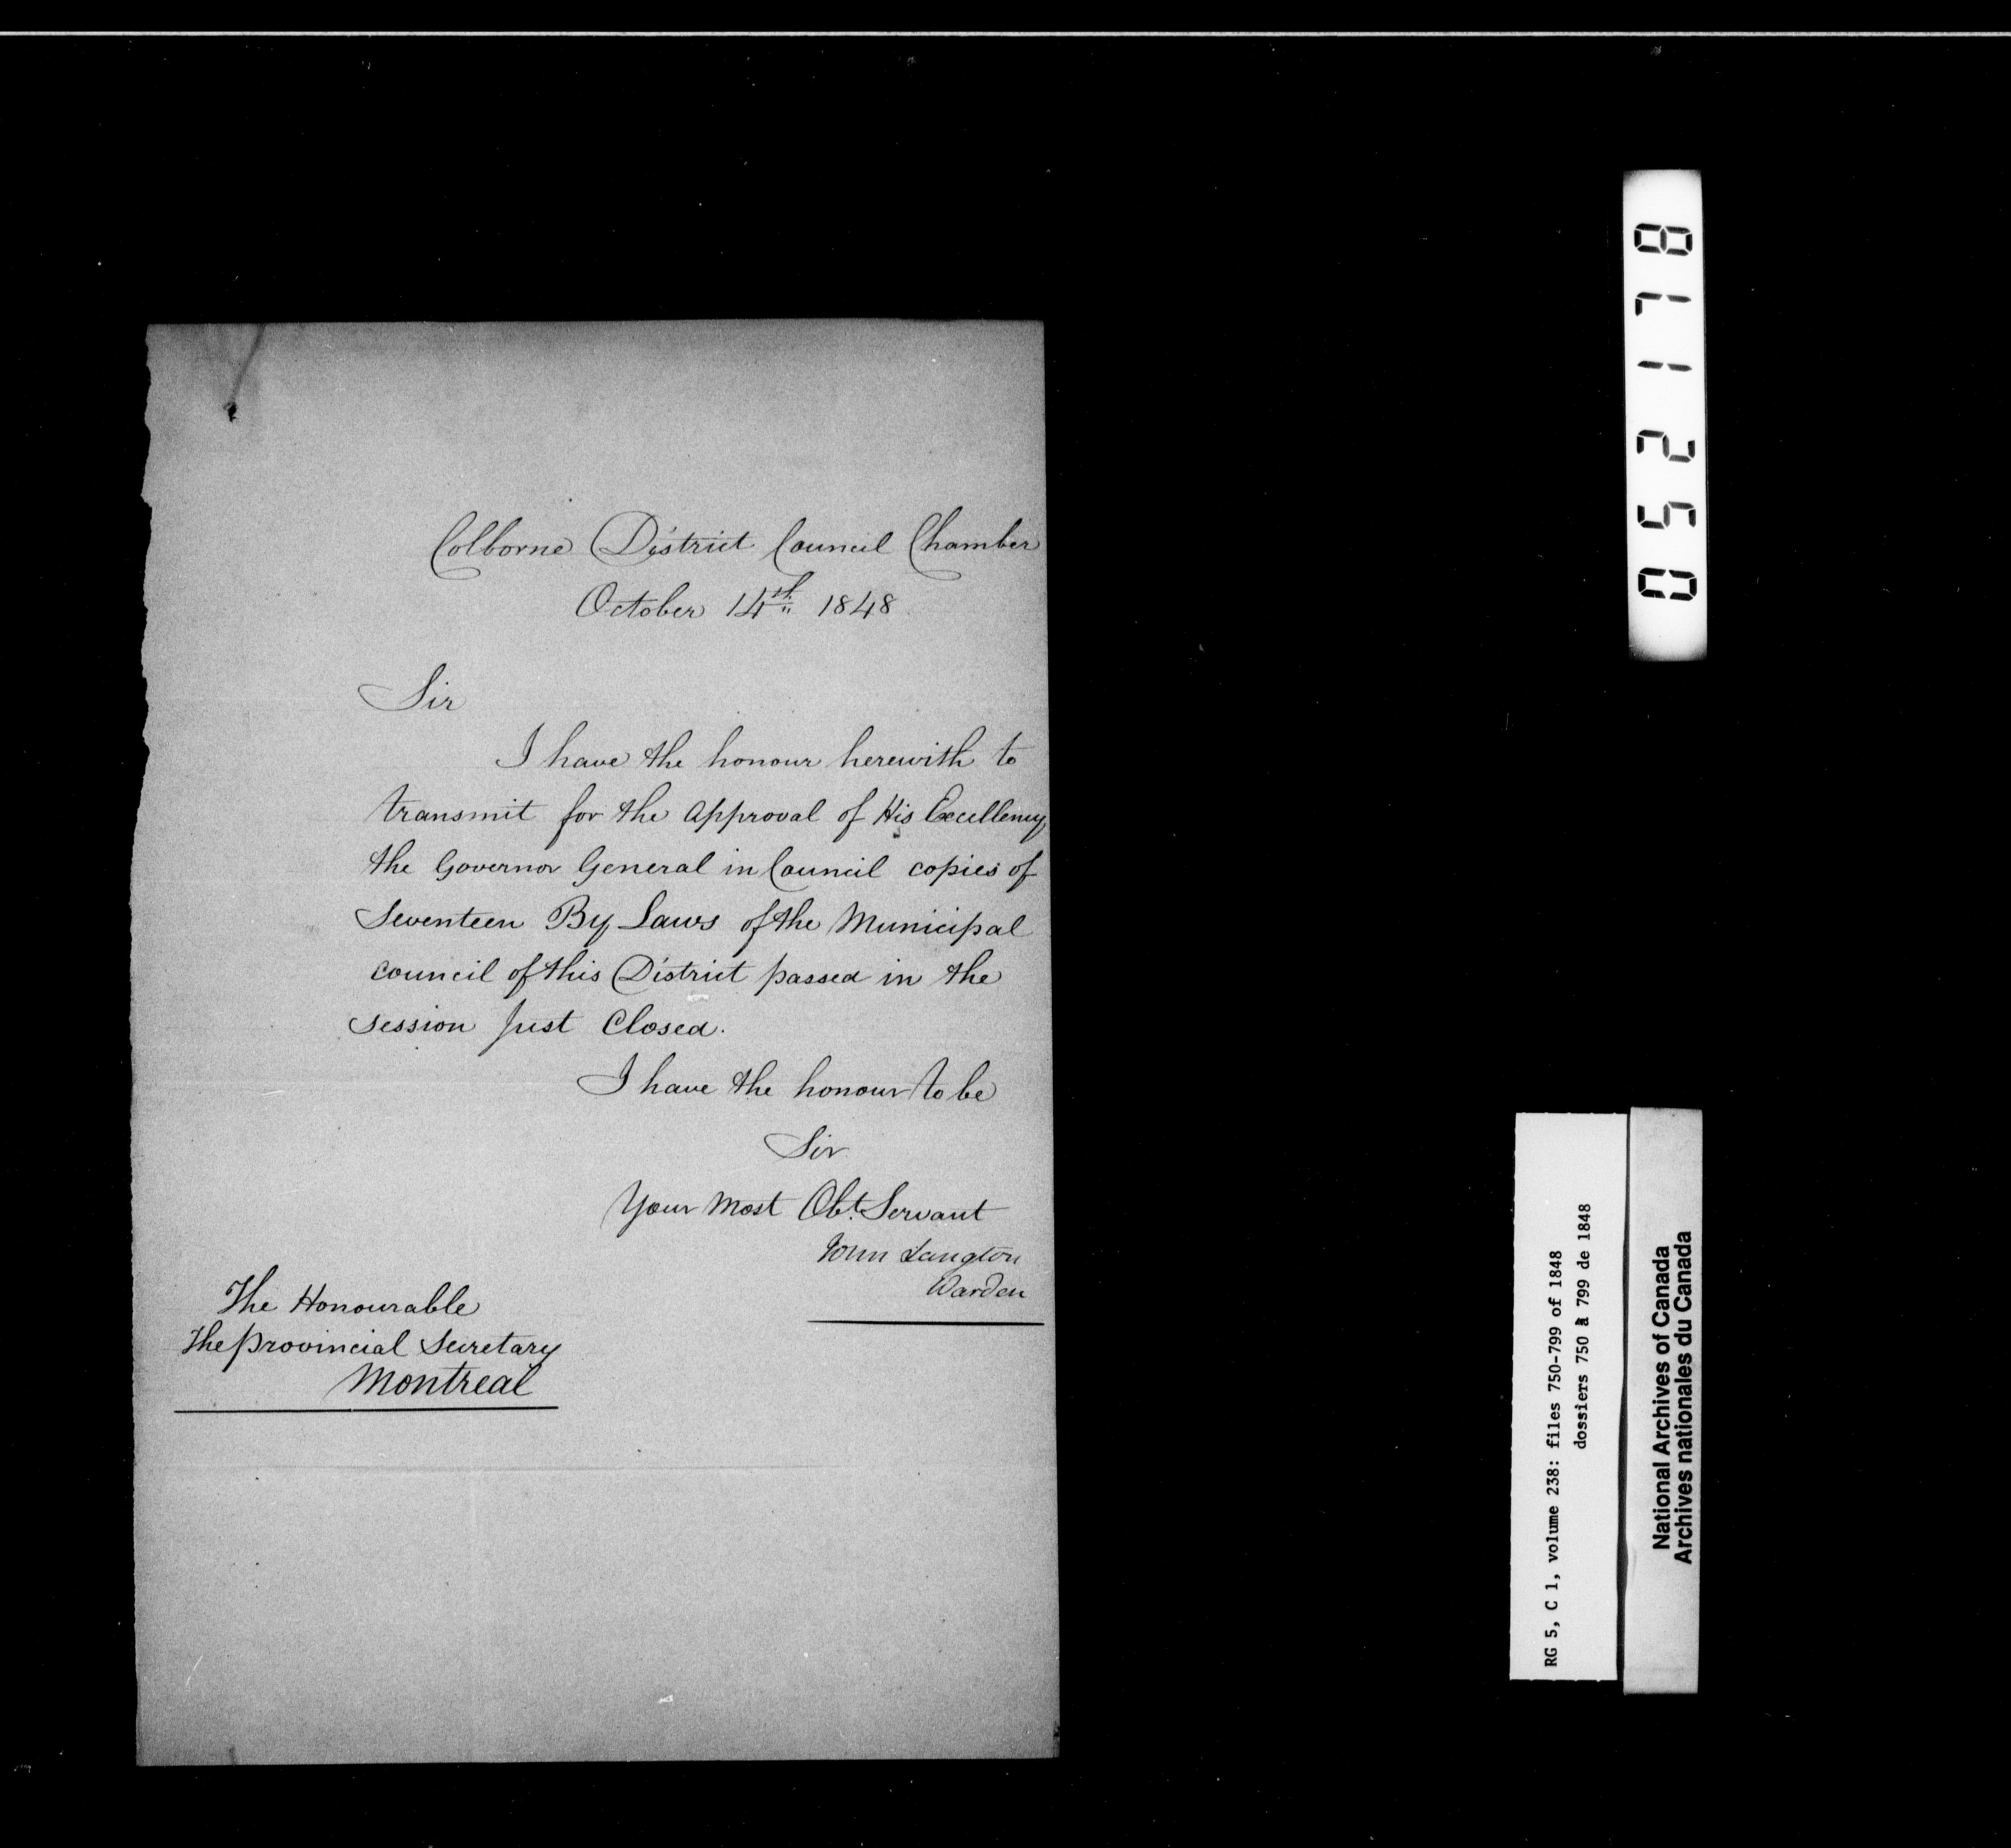 Colborne District Council Chamber
October 14th 1848
Sir
I have the honour herewith to
transmit for the Approval of His Excellency
the Governor General in Council copies of
Seventeen By Laws of the Municipal
Council of this District passed in the
session Just Closed.
I have the honour to be
Sir
Your Most Obt. Servant
John Langton
Warden
The Honourable
The Provincial Secretary
Montreal
052178
RG 5, C 1, volume 238: files 750-799 of 1848
dossiers 750 à 799 de 1848
National Archives of Canada
Archives nationales du Canada